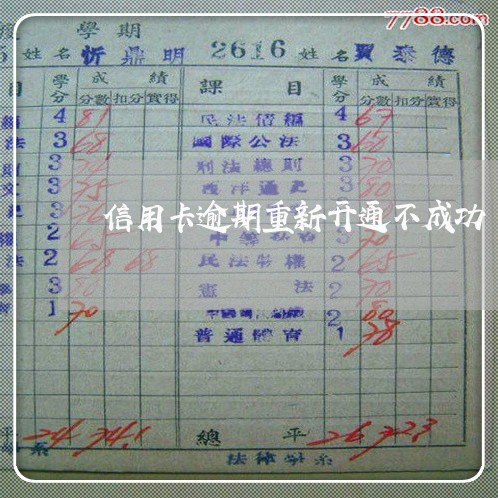 7788.com
學期
姓名 忻鼎明 2616 姓名 賈泰德
目 學分 成績 課目 學分 成績
分數 扣分 實得 分數 扣分 實得
4 81 民法債編 4 67
法 3 68 國際公法 3 60
3 刑法總則 3 70
3 75 西洋通史 3 80
信用卡逾期重新开通不成功
2 65 3 70
法 2 68 68 民法物權 2 65
3 80 憲法 2 70
育 1 70 2 80
普通體育 1 78
平 24 74.1 總平 26 72.3
系 法律學系